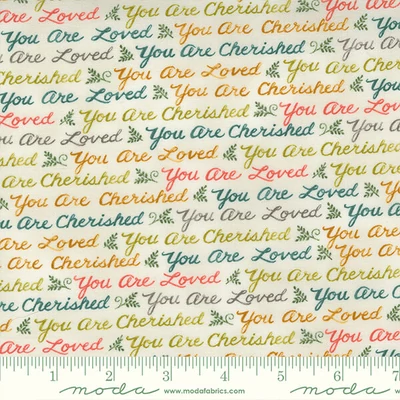 You Are Cherished You Are Loved
You Are Loved You Are Cherished
Cherished You Are Loved You Are Cherished
Cherished You Are Loved You Are Cherished
Are Loved You Are Cherished You Are Loved
Are Loved You Are Cherished You Are Loved
Are Loved You Are Cherished You Are
Cherished You Are Loved You Are Cherished
Are Cherished You Are Loved You Are
You Are Cherished You Are Loved You
Are Cherished You Are Loved You Are
You Are Cherished You Are Loved
Are Loved You Are Cherished You Are Loved
Are Cherished You Are Loved You Are Cherished
You Are Loved You Are Cherished
Are Cherished You Are Loved You Are Cherished
You Are Cherished You Are Loved
Are Loved You Are Cherished
1 2 3 4 5 6 7
moda www.modafabrics.com moda